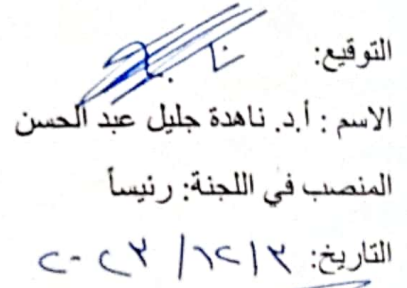 التوقيع:
الاسم : أ.د. ناهدة جليل عبد الحسن
المنصب في اللجنة: رئيساً
التاريخ: ٣ / ١٢ / ٢٠٢٣